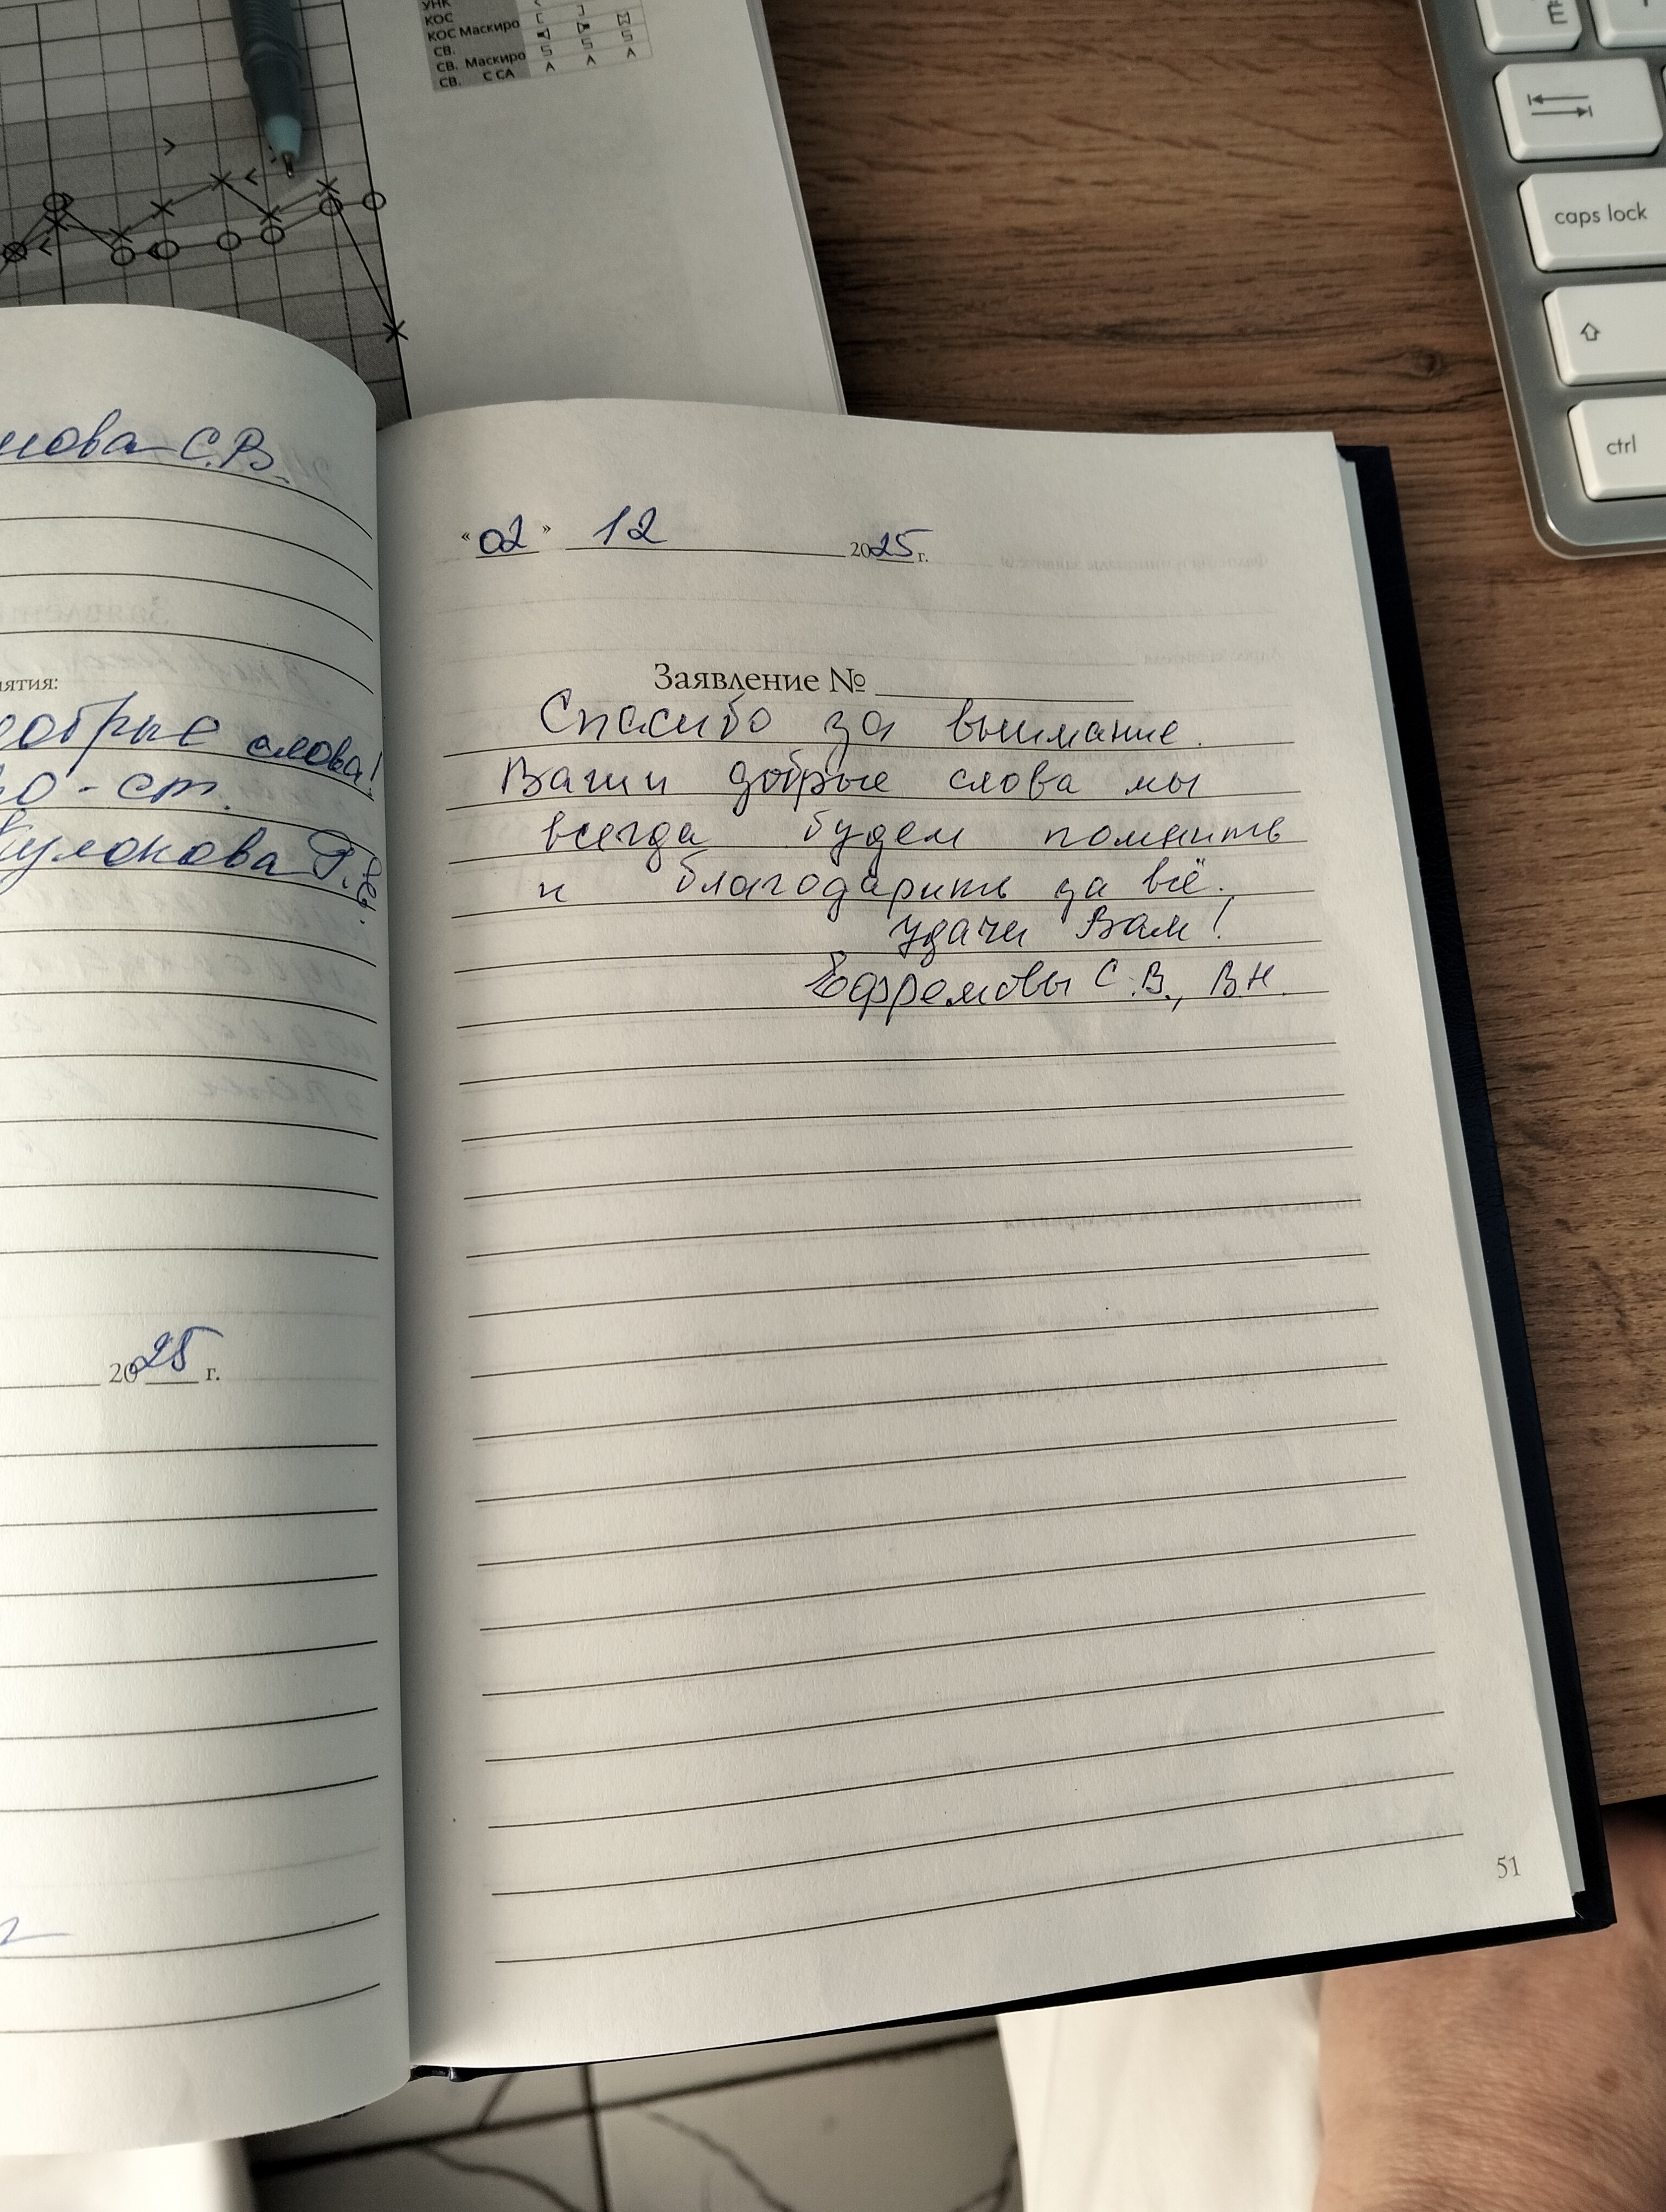 УНК
КОС
КОС Маскиро
СВ.
СВ. Маскиро
СВ. С СА
Ё
caps lock
ctrl
нова С.В.
ятия:
добрые слова!
ю - ст.
Р.В.
2025 г.
«02» 12 2025 г.
Заявление №
Спасибо за внимание.
Ваши добрые слова мы
всегда будем помнить
и благодарить за всё.
Удачи Вам!
Ефремовы С.В., В.Н.
51